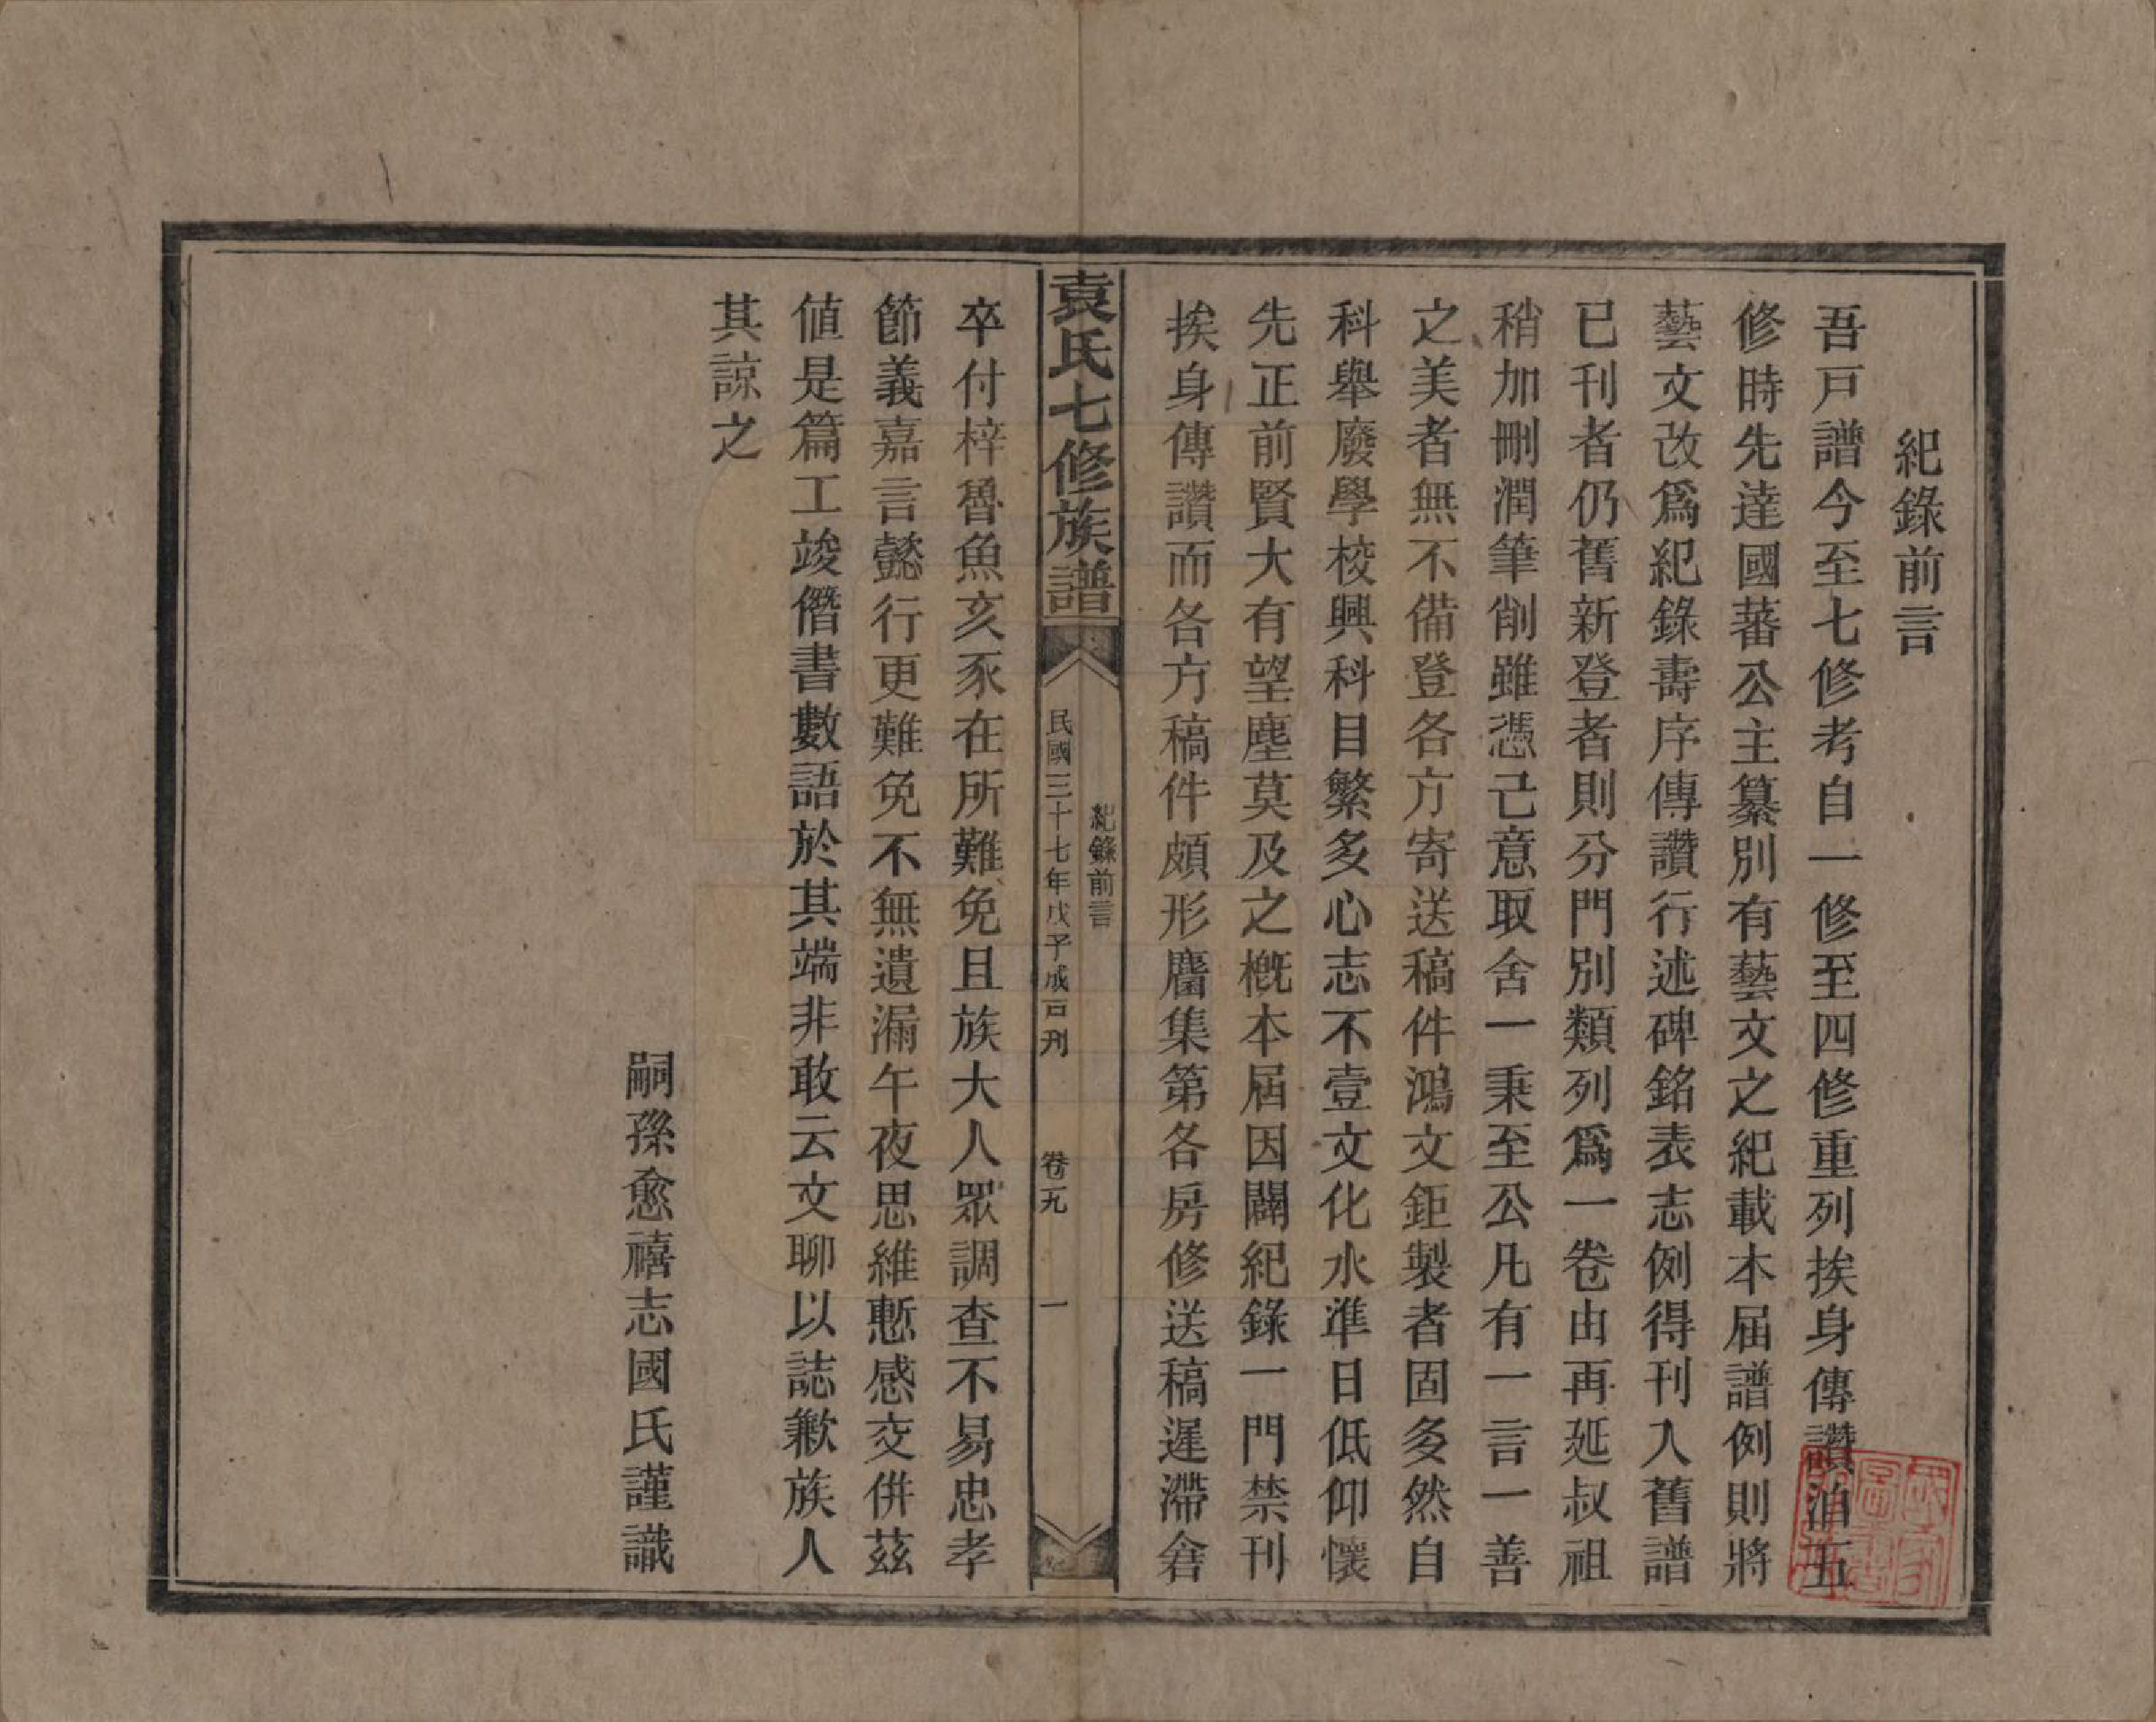 紀錄前言
吾戸譜今至七修考自一修至四修重列挨身傳讚洎五
修時先達國蕃公主纂別有藝文之紀載本届譜例則將
藝文改爲紀錄壽序傳讚行述碑銘表志例得刊入舊譜
已刊者仍舊新登者則分門別類列爲一卷由再延叔祖
稍加刪潤筆削雖憑己意取舍一秉至公凡有一言一善
之美者無不備登各方寄送稿件鴻文鉅製者固多然自
科舉廢學校興科目繁多心志不壹文化水準日低仰懷
先正前賢大有望塵莫及之槪本届因關紀錄一門禁刊
挨身傳讚而各方稿件頗形麕集第各房修送稿遲滯倉
袁氏七修族譜
紀錄前言
民國三十七年戊子成戸刋
卷九
一
卒付梓魯魚亥豕在所難免且族大人眾調查不易忠孝
節義嘉言懿行更難免不無遺漏午夜思維慙感交併茲
值是篇工竣僭書數語於其端非敢云文聊以誌歉族人
其諒之
嗣孫愈禧志國氏謹識